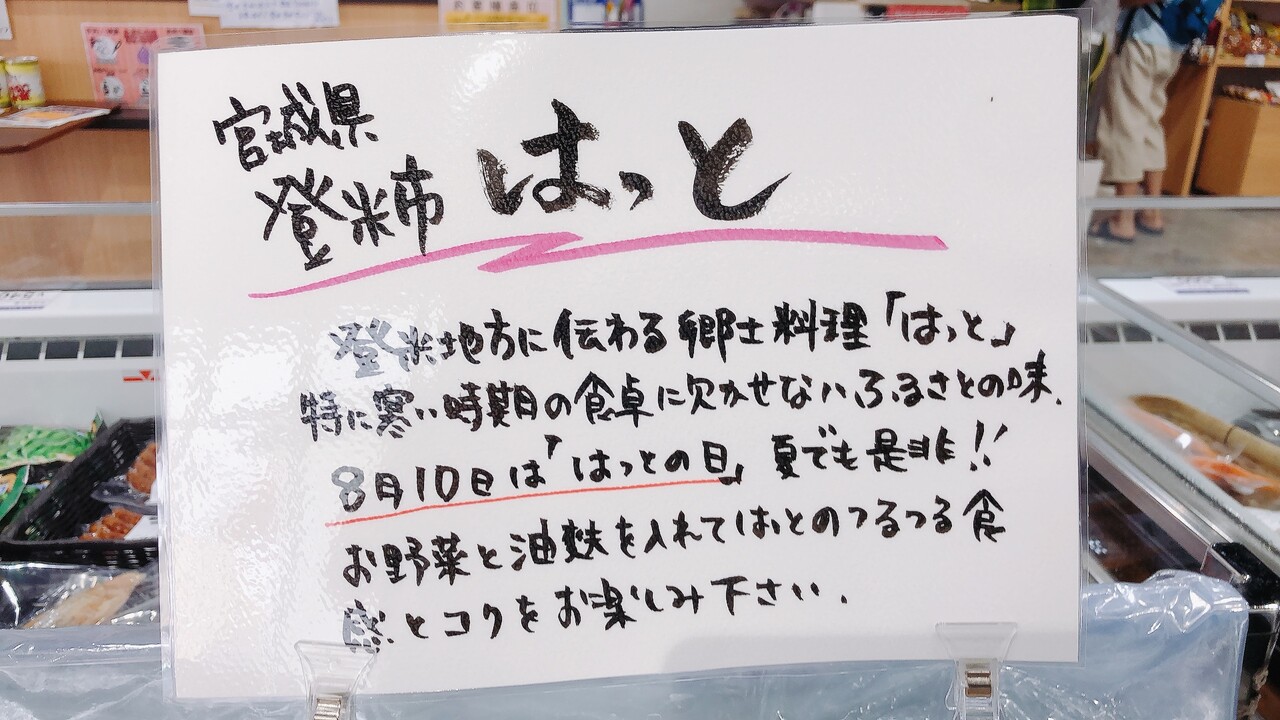 宮城県
登米市 はっと
登米地方に伝わる郷土料理「はっと」
特に寒い時期の食卓に欠かせないふるさとの味.
8月10日は「はっとの日」夏でも是非!!
お野菜と油麩を入れてはっとのつるつる食
感とコクをお楽しみ下さい.